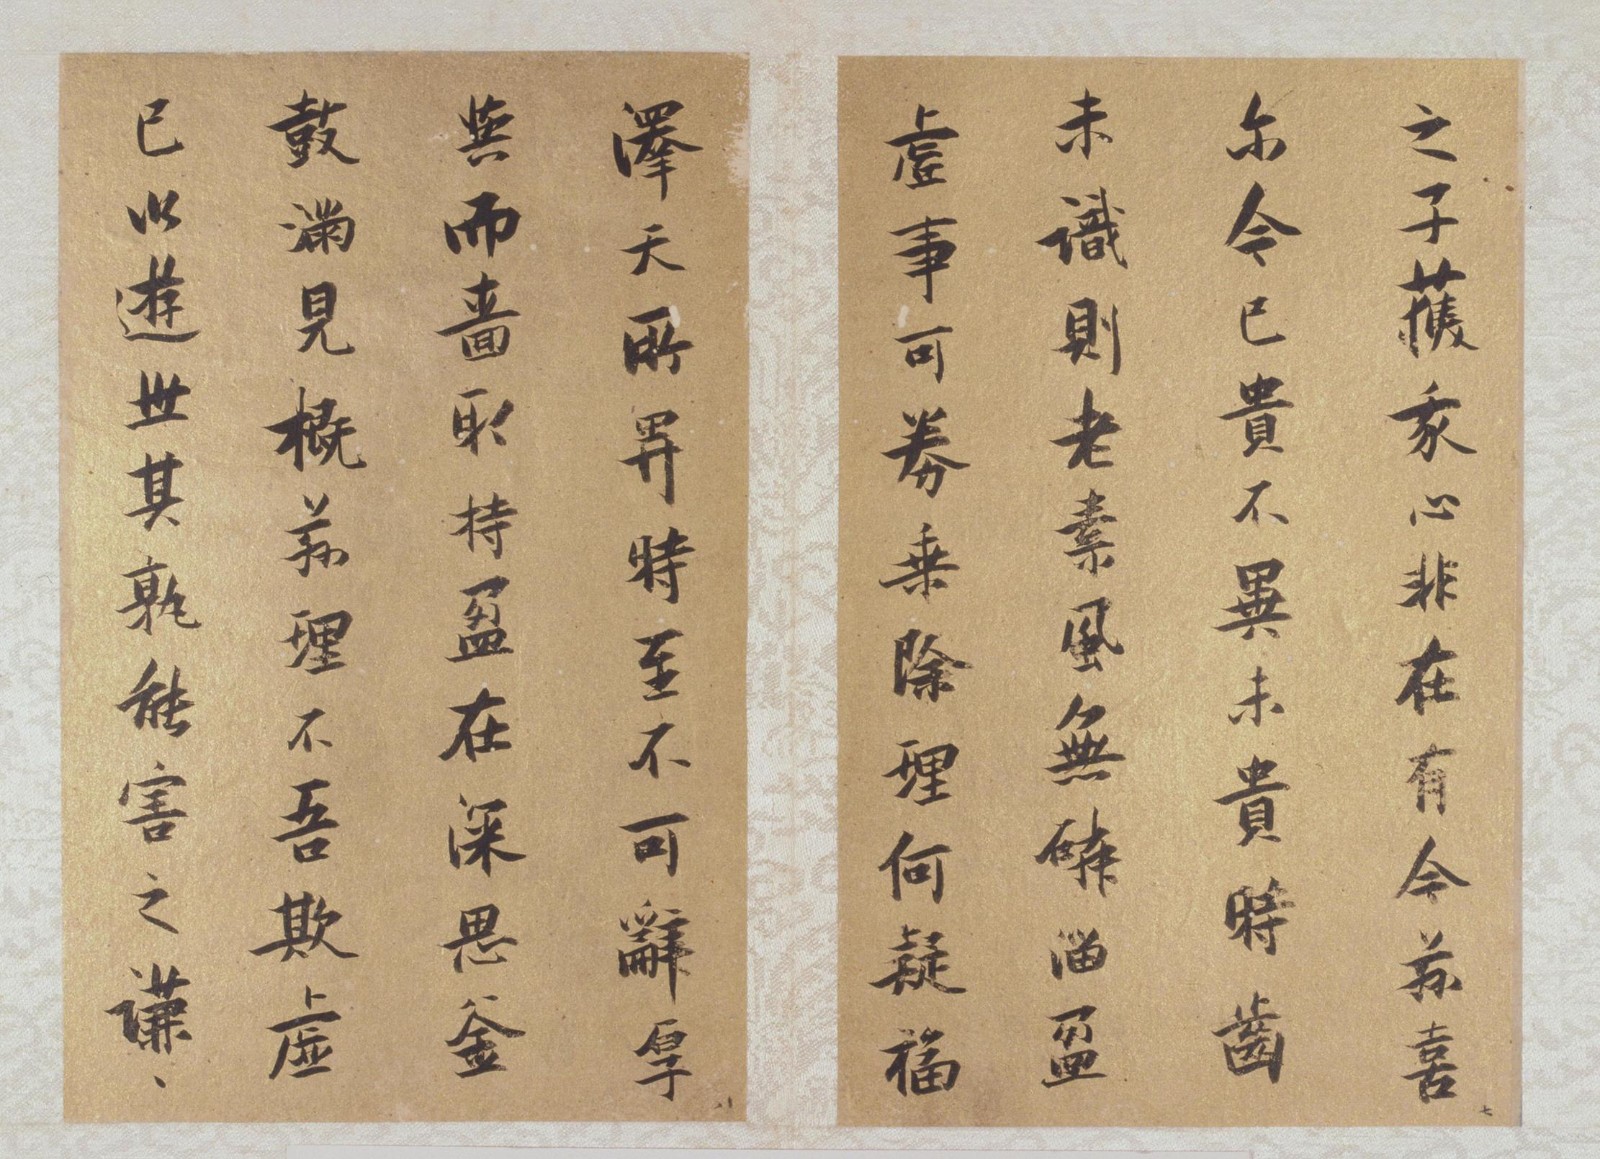 之子獲我心非在有今茲喜
尔今已貴不異未貴時齒
未識則老素風無磷淄盈
虛事可券乘除理何疑福
七
澤天所畀時至不可辭厚
與而嗇取持盈在深思釜
鼓滿見概茲理不吾欺虛
已以遊世其孰能害之謙、
八